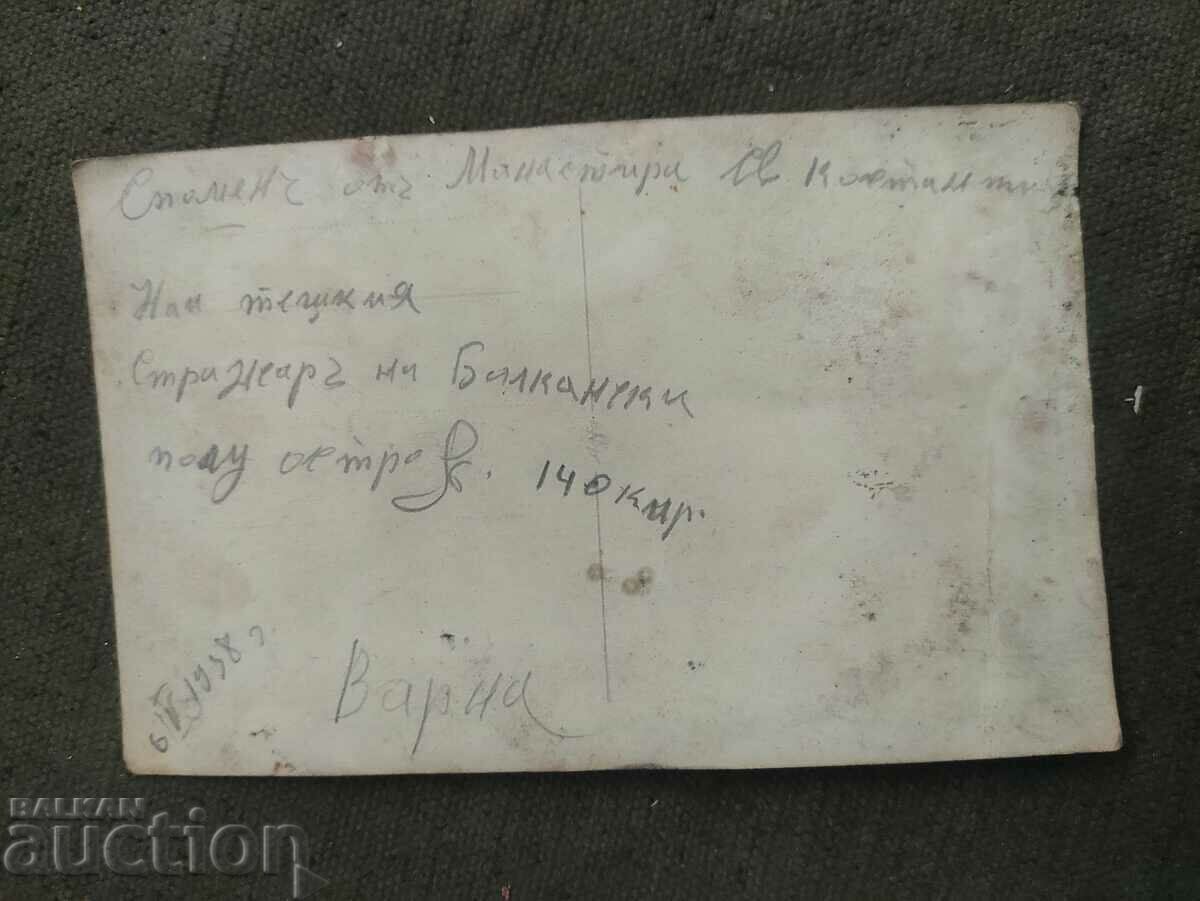 Споменъ отъ Манастира Св. Костанти
Най тешкия
Стражаръ на Балкански
полу остров. 140 кир.
6/IV 1938 г
Варна
BALKAN
auction